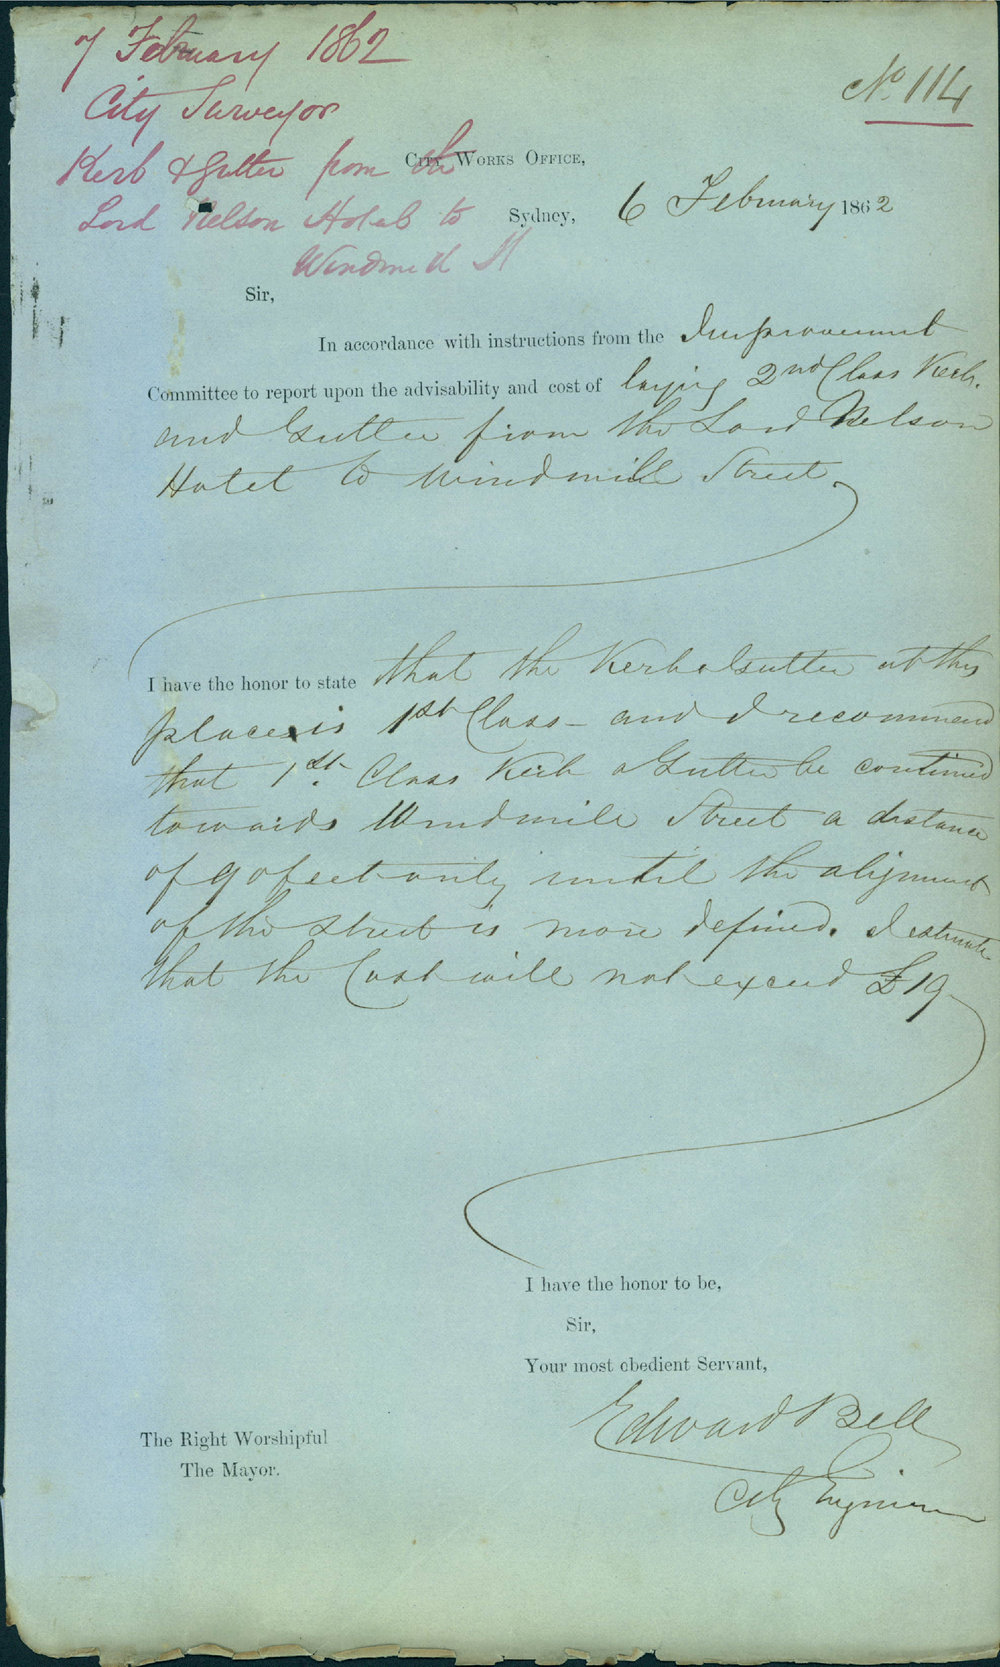 7 February 1862
City Surveyor
Kerb & Gutter from the
Lord Nelson Hotel to
Windmill St
No. 114
City Works Office,
Sydney, 6 February 1862
Sir,
In accordance with instructions from the Improvement
Committee to report upon the advisability and cost of laying 2nd Class Kerb.
and Gutter from the Lord Nelson
Hotel to Windmill Street.
I have the honor to state that the Kerb & Gutter at this
place is 1st Class - and I recommend
that 1st. Class Kerb & Gutter be continued
towards Windmill Street a distance
of 90 feet only until the alignment
of the street is more defined. I estimate
that the Cost will not exceed £19
I have the honor to be,
Sir,
Your most obedient Servant,
Edward Bell
City Engineer
The Right Worshipful
The Mayor.